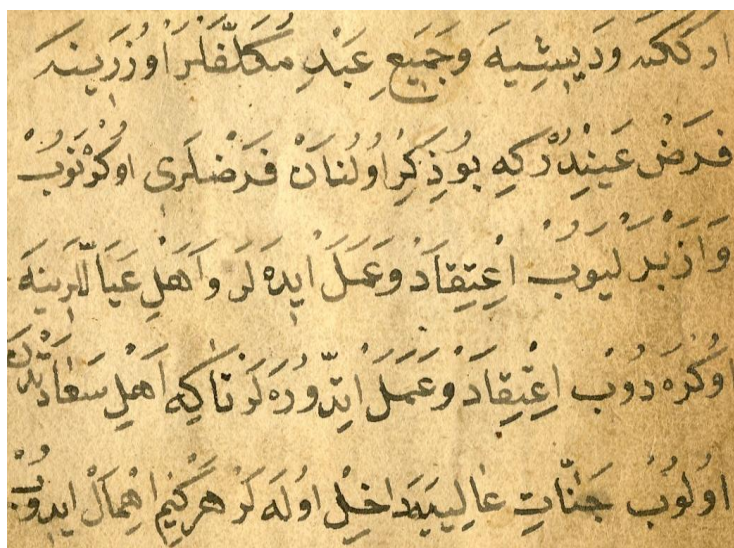 اَرْكَكَه وَدِيشِيَه وَجَمِيعِ عَبْدِ مُكَلَّفْلَرْ اُوزَرِينَه
فَرْضُ عَيْنِدُرْكِه بُوذِكِرْ اُولُنَانْ فَرْضْلَرِى اُوكْرَنُوبْ
وَاَزْبَرْلَيُوبْ اِعْتِقَادْ وَعَمَلْ اِيدَه‌لَرْ وَاَهْلِ عَيَاللَّرِينَه
اُوكْرَه‌دُوبْ اِعْتِقَادْ وَعَمَلْ اِتْدُورَه‌لَرْ تَاكِه اَهْلِ سَعَادَتْدَنْ
اُولُوبْ جَنَّاتِ عَالِيَيَه دَاخِلْ اُولَه‌لَرْ هَرْكِيمْ اِهْمَالْ ايدُوبْ